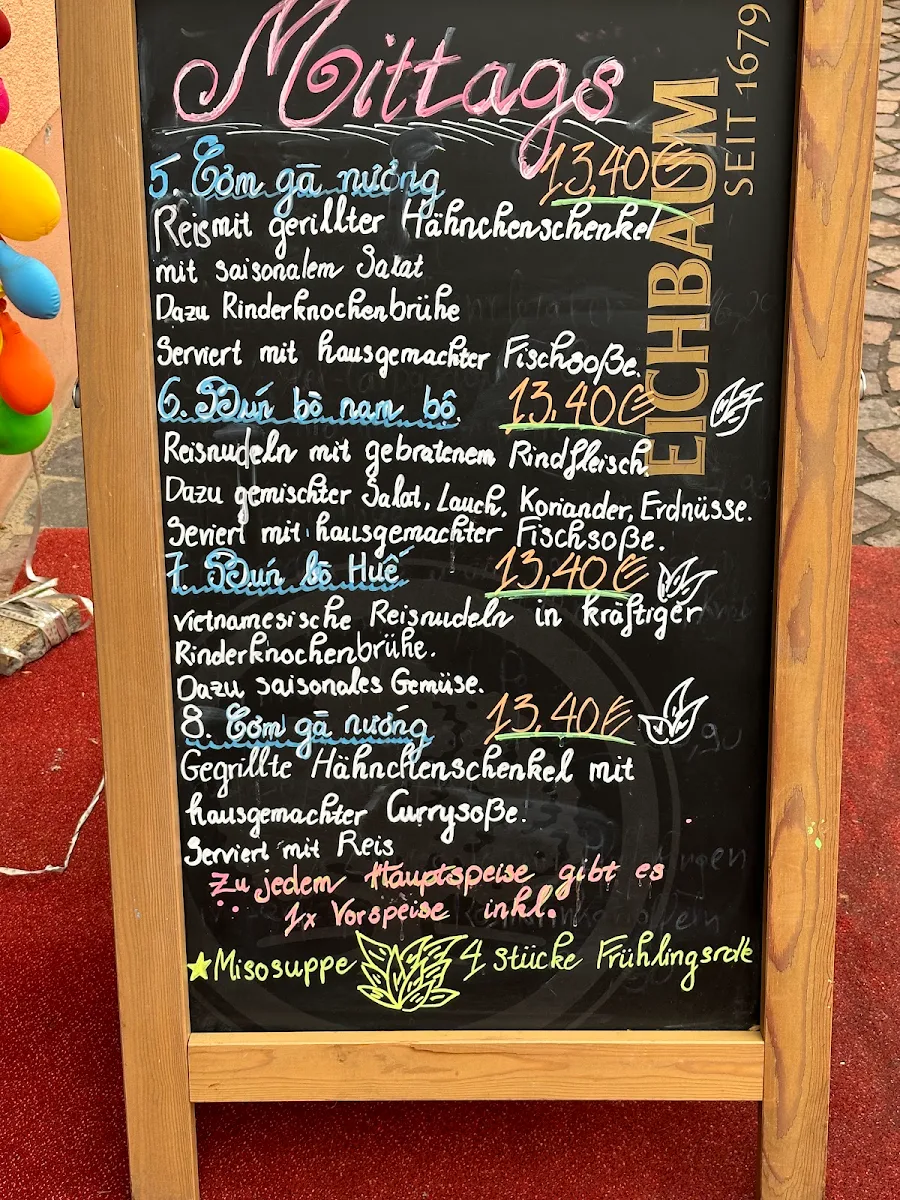 Mittags
EICHBAUM
SEIT 1679
5. Cơm gà nướng 13,40€
Reis mit gerillter Hähnchenschenkel
mit saisonalem Salat
Dazu Rinderknochenbrühe
Serviert mit hausgemachter Fischsoße.
6. Bún bò nam bô 13,40€
Reisnudeln mit gebratenem Rindfleisch.
Dazu gemischter Salat, Lauch, Koriander, Erdnüsse.
Seviert mit hausgemachter Fischsoße.
7. Bún bò Huế 13,40€
vietnamesische Reisnudeln in kräftiger
Rinderknochenbrühe.
Dazu saisonales Gemüse.
8. Cơm gà nướng 13,40€
Gegrillte Hähnchenschenkel mit
hausgemachter Currysoße.
Serviert mit Reis
Zu jedem Hauptspeise gibt es
1x Vorspeise inkl.
★Misosuppe 4 stücke Frühlingsrolle